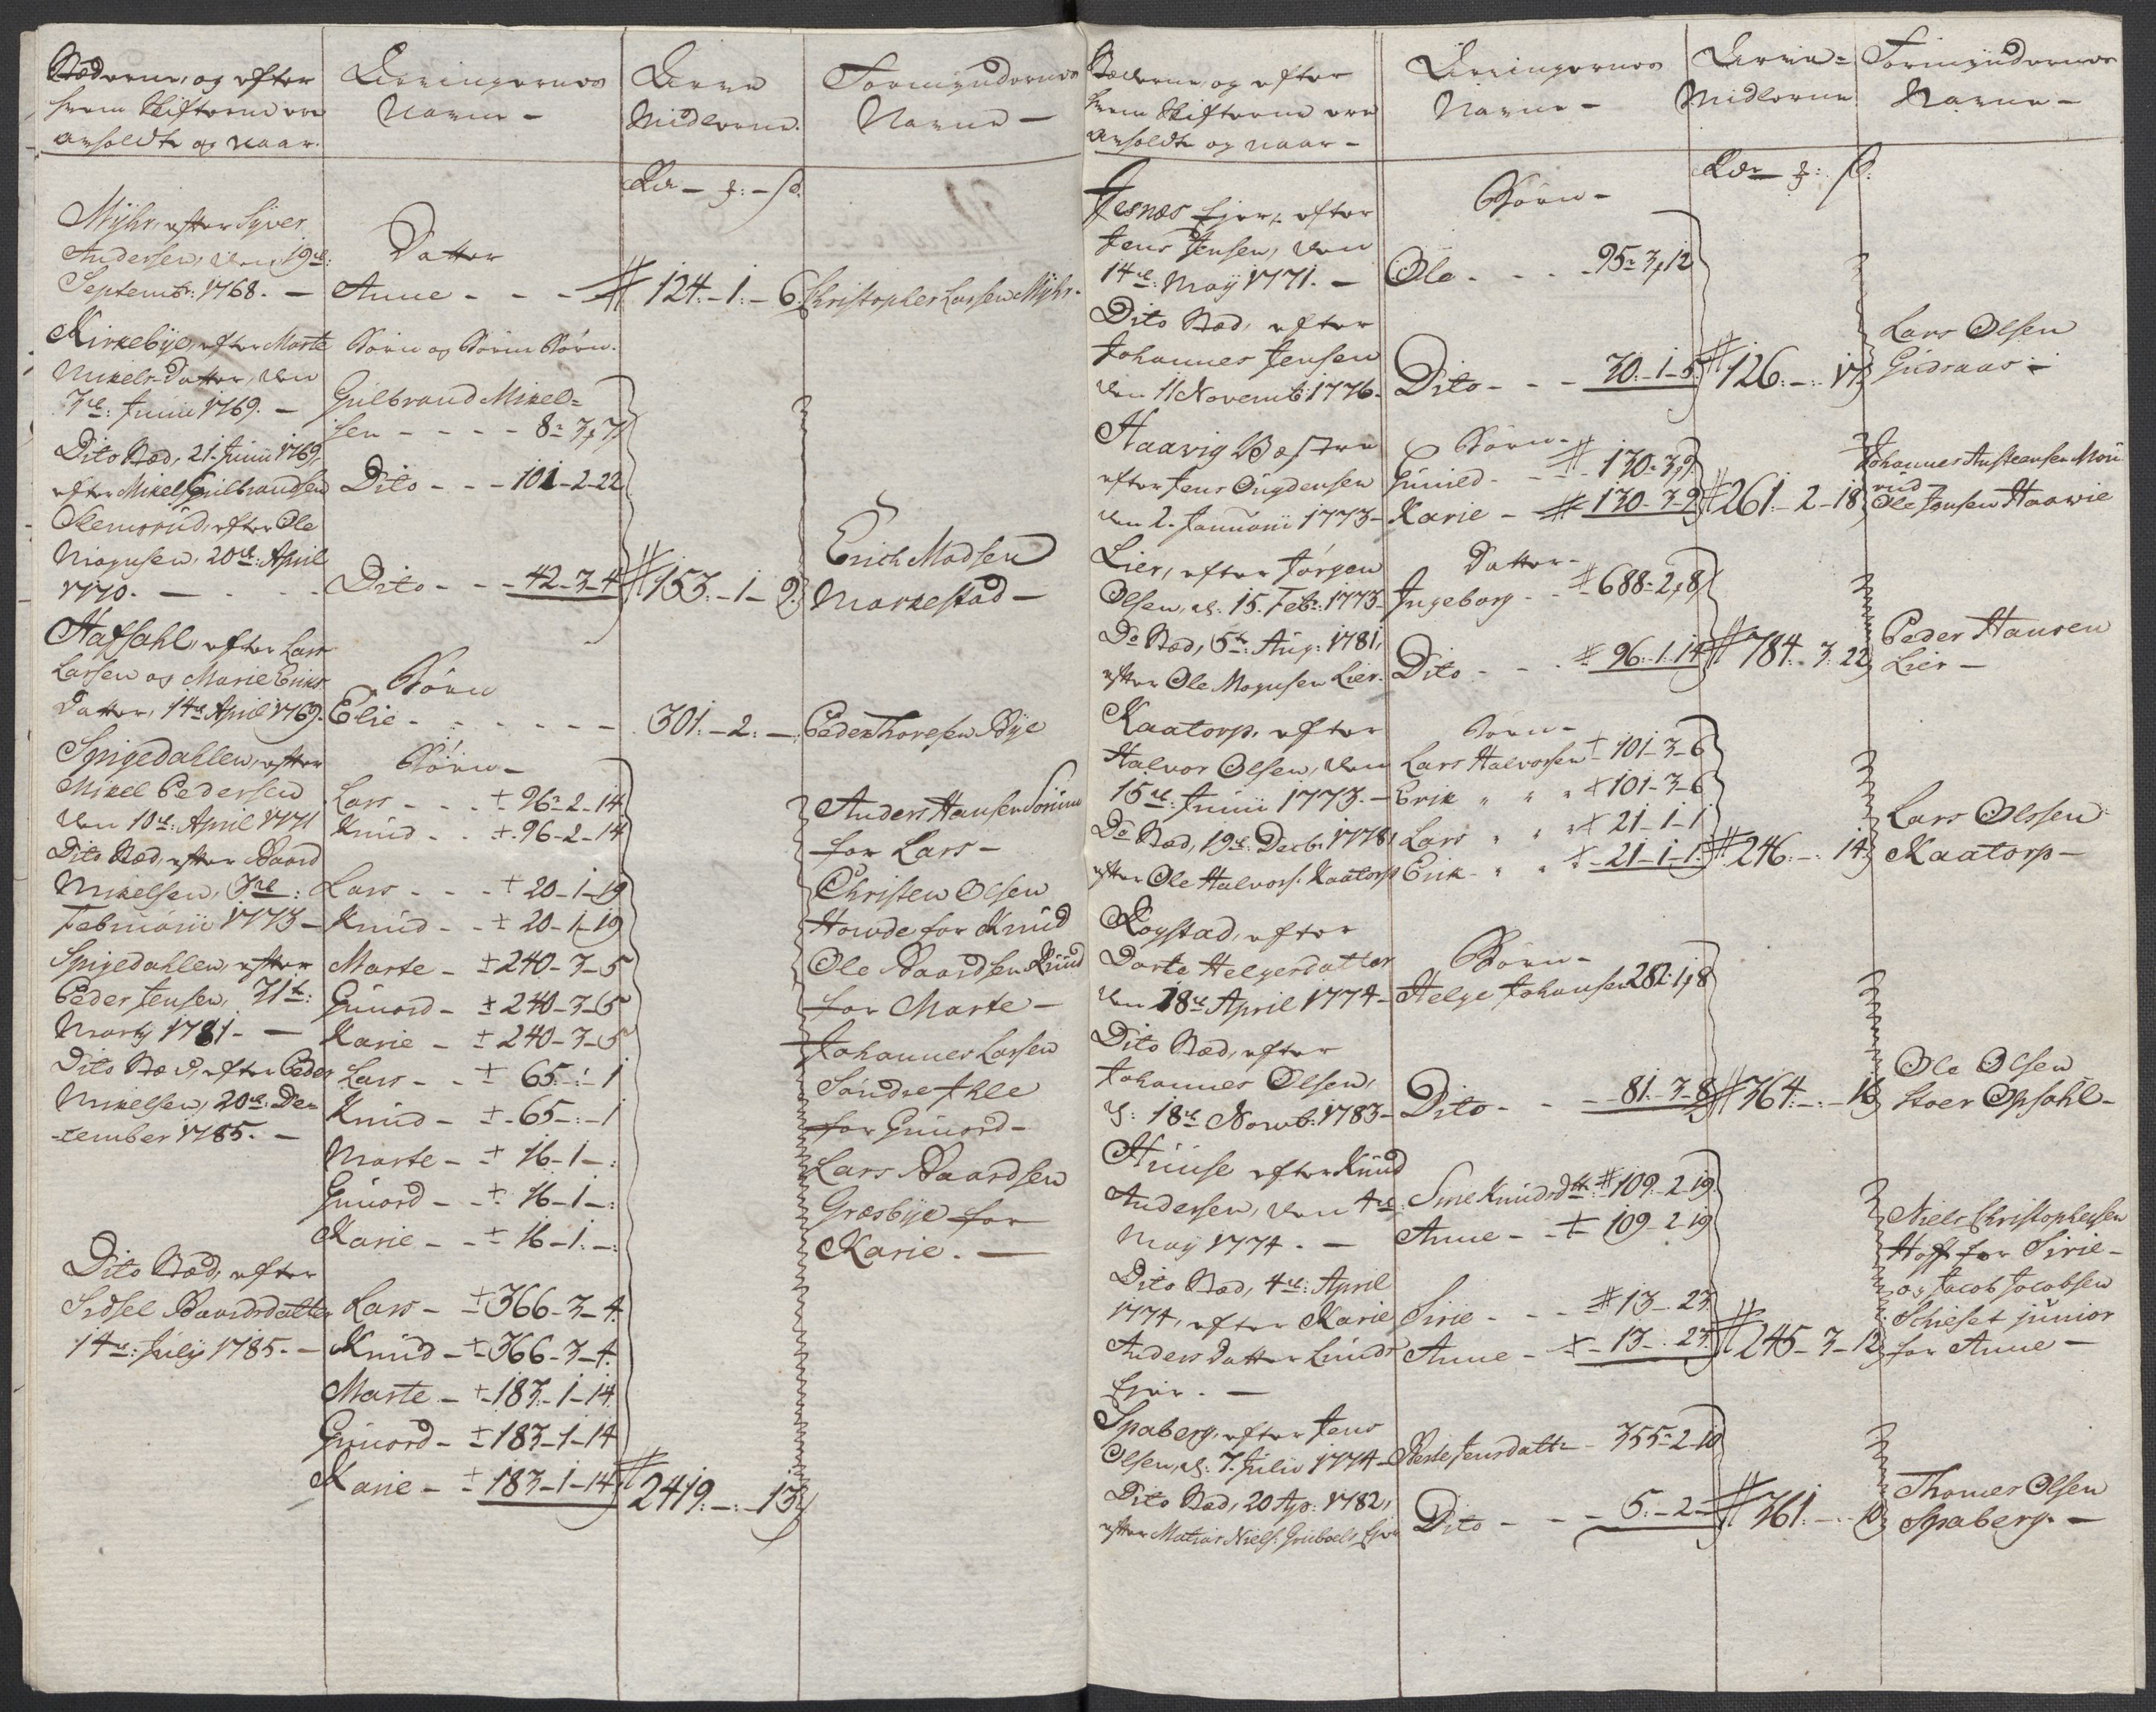 Stæderne, og efter
hvem Skifterne ere
avholdte og naar.
Arvingernes
Navne -
Arve
Midlerne.
Formyndernes
Navne -
Rdr - ₰: - s.
Myhr, efter Syver
Andersen, den 19de:
Septembr: 1768. -
Datter
Anne - - - # 124. - 1. - 6. Christopher Larsen Myhr.
Kirkebye, efter Marte
Mikels Datter, den
3de: Junii 1769. -
Børn og Børns Børn.
Gulbrand Mikel=
sen - - - - 8 - 3, 7
Dito Stæd, 21. Junii 1769,
efter Mikel Gulbrandsen
Dito - - - 101 - 2 - 22
efter Ole
Mogensen, 20de: April
1770. -
Dito - - - 42 - 3 - 4 # 153. - 1 - 9.
Erich Madsen
Markestad -
Hafsahl, efter Lars
Larsen og Marie Eriks
Datter, 14de April 1769.
Børn
Elie - - - - - - 301. - 2. - Peder Thoresen Bye
Spigedahlen, efter
Mikel Pedersen
den 10de: April 1771
Børn -
Lars - - - ± 96 - 2 - 14
Knud - - ± 96 - 2 - 14
Dito Stæd, efter Baard
Mikelsen, 3de:
Februarii 1773 -
Lars - - - ± 20 - 1 - 19
Knud - - ± 20 - 1 - 19
Spigedahlen, efter
Peder Jensen, 31te:
Marty 1781 - -
Marte - ± 240 - 3 - 5
Guuord - ± 240 - 3 - 5
Karie - ± 240 - 3 - 5
Dito Stæd, efter Peder
Mikelsen, 20de: De
-cember 1785. -
Lars - - ± 65 - : - 1
Knud - ± 65 - : - 1
Marte - ± 16 - 1 - :
Guuord - - ± 16 - 1 - :
Karie - - ± 16 - 1 - :
Dito Stæd, efter
Sidsel Baardsdatter
14de: July 1785. -
Lars - ± 366 - 3 - 4.
Knud - ± 366 - 3 - 4.
Marte - ± 183 - 1 - 14
Guuord - ± 183 - 1 - 14
Karie - ± 183 - 1 - 14 # 2419. - : - 13
Anders Hansen
for Lars -
Christen Olsen
Howde for Knud
Ole Baardsen Ruud
for Marte -
Johannes Larsen
Søndre Ihle
for Guuord -
Lars Baardsen
Græsbye for
Karie. -
Stæderne, og efter
hvem Skifterne ere
avholdte og naar -
Arvingernes
Navne -
Arve=
Midlerne
Formyndernes
Navne -
Rdr - ₰: s.
Jesnæs Ejer, efter
Jens Jensen, den
14de: May 1771. -
Børn -
Ole - - - 95 - 3, 12
Dito Stæd, efter
Johannes Jensen
den 11 Novemb: 1776.
Dito - - - 30. - 1 - 5. # 126. - : 17
Lars Olsen
Gudsaas -
Haavig Westre
efter Jens Ougdensen
den 2. Januarii 1773 -
Børn -
Guuild - # 130 - 3, 9
Karie - # 130 - 3 - 9 # 261. - 2 - 18
Johannes Austeensen Mou
rud
Ole Jensen Haavie
Lier, efter Jørgen
Olsen, d. 15. Febr: 1773 -
Datter -
Ingeborg - # 688 - 2, 8
Do Stæd, 5te: Aug: 1781,
efter Ole Mogensen Lier.
Dito - - - # 96. - 1. 14 # 784. - 3. 22
Peder Hansen
Lier -
Kaatorp, efter
Halvor Olsen, den
15de: Junii 1773. -
Børn -
Lars Halvorsen ± 101 - 3 - 6
Erik " " " ± 101 - 3 - 6
Do Stæd, 19de: Decb: 1778,
efter Ole Halvors. Kaatorp
Lars " " ± 21 - 1 - 1
Erik " " ± 21 - 1 - 1. # 246. - : 14.
Lars Olssen
Kaatorp -
Rogstad, efter
Dorte Helgesdatter
den 18de April 1774 -
Børn -
Helge Johansen 282. 1, 8
Dito Stæd, efter
Johannes Olsen,
d: 18de Novb: 1783 -
Dito - - - 81. - 3 - 8 # 364. - : - 16
Ole Olsen
Stoer Opsahl -
Huuse efter Knud
Andersen, den 4de:
May 1774. -
Sirie Knudsdtt: # 109. - 2 - 19.
Anne - - ± 109 - 2 - 19
Dito Stæd, 4de: April
1774, efter Karie
Anders Datter Lunds
Ejer. -
Sirie - - - # 13 - . 23
Anne - ± 13 - : 23. # 245 - 3 - 12
Niels Christophersen
Hoff for Sirie -
og Jacob Jacobsen
Schieset junior
for Anne -
Spaberg, efter Jens
Olsen, d: 7. Julii 1774 -
Berte Jensdatt: - 355 - 2 - 10
Dito Stæd, 20 Ap: 1782,
efter Niels. Ejer
Dito - - - 5. - 2 - # 361. - : 10
Thomes Olsen
Spaberg. -